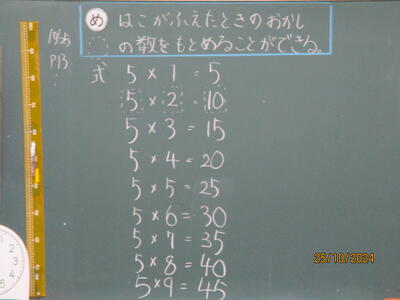 め はこがふえたときのおかし
の数をもとめることができる。
P13
式 5 × 1 = 5
5 × 2 = 10
5 × 3 = 15
5 × 4 = 20
5 × 5 = 25
5 × 6 = 30
5 × 7 = 35
5 × 8 = 40
5 × 9 = 45
25/10/2024